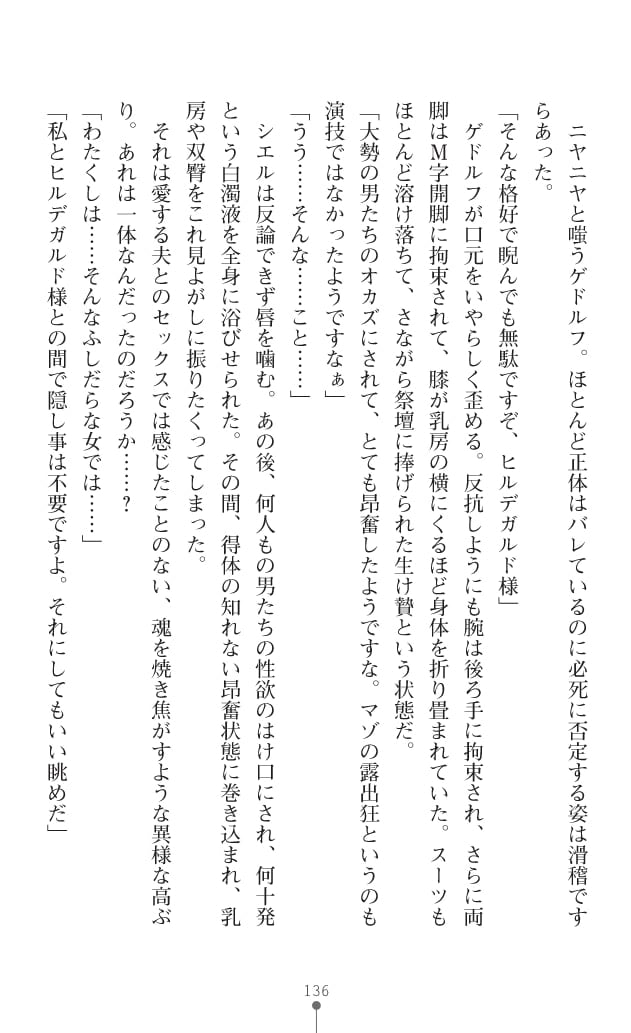 ニヤニヤと嗤うゲドルフ。ほとんど正体はバレているのに必死に否定する姿は滑稽です
らあった。
「そんな格好で睨んでも無駄ですぞ、ヒルデガルド様」
ゲドルフが口元をいやらしく歪める。反抗しようにも腕は後ろ手に拘束され、さらに両
脚はM字開脚に拘束されて、膝が乳房の横にくるほど身体を折り畳まれていた。スーツも
ほとんど溶け落ちて、さながら祭壇に捧げられた生け贄という状態だ。
「大勢の男たちのオカズにされて、とても昂奮したようですな。マゾの露出狂というのも
演技ではなかったようですなぁ」
「うう……そんな……こと……」
シエルは反論できず唇を噛む。あの後、何人もの男たちの性欲のはけ口にされ、何十発
という白濁液を全身に浴びせられた。その間、得体の知れない昂奮状態に巻き込まれ、乳
房や双臀をこれ見よがしに振りたくってしまった。
それは愛する夫とのセックスでは感じたことのない、魂を焼き焦がすような異様な高ぶ
り。あれは一体なんだったのだろうか……?
「わたくしは……そんなふしだらな女では……」
「私とヒルデガルド様との間で隠し事は不要ですよ。それにしてもいい眺めだ」
136